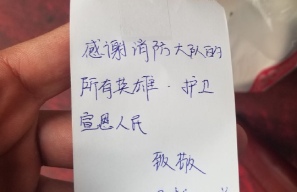 感谢消防大队的
所有英雄·护卫
宣恩人民
致敬